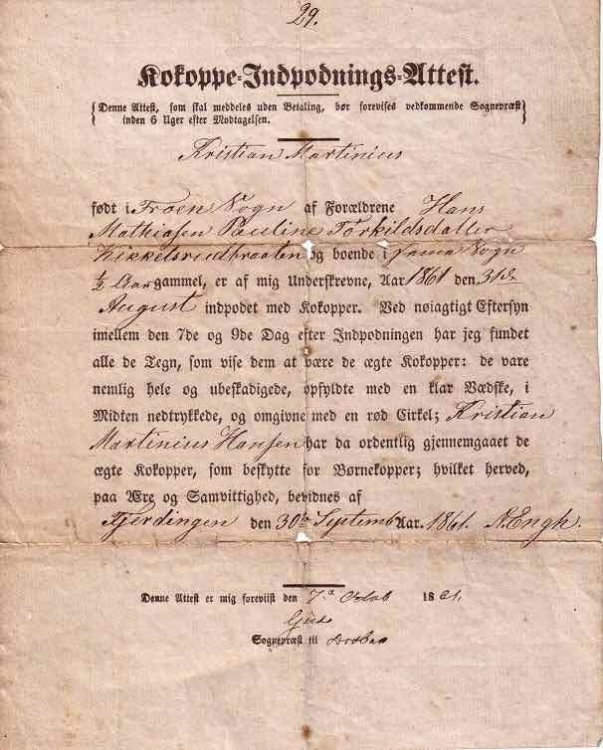 29.
Kokoppe-Indpodnings-Attest.
{Denne Attest, som skal meddeles uden Betaling, bør forevises vedkommende Sognepræst}
inden 6 Uger efter Modtagelsen.
Kristian Martinius
født i Froen Sogn af Forældrene Hans
Mathiasen Pauline Torkildsdatter
og boende i samme Sogn
1/2 Aar gammel, er af mig Underskrevne, Aar 1861 den 31de
August indpodet med Kokopper. Ved nøiagtigt Eftersyn
imellem den 7de og 9de Dag efter Indpodningen har jeg fundet
alle de Tegn, som vise dem at være de ægte Kokopper: de vare
nemlig hele og ubeskadigede, opfyldte med en klar Vædske, i
Midten nedtrykkede, og omgivne med en rød Cirkel; Kristian
Martinius Hansen har da ordentlig gjennemgaaet de
ægte Kokopper, som beskytte for Børnekopper; hvilket herved,
paa Ære og Samvittighed, bevidnes af
Fjerdingen den 30te Septemb Aar. 1861. N.Engh.
Denne Attest er mig foreviist den 7de Octob 1861.
Sognepræst til